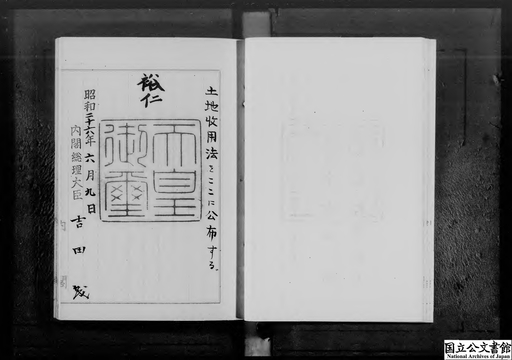 土地収用法をここに公布する。
裕仁
天皇
御璽
昭和二十六年六月九日
内閣総理大臣 吉田茂
国立公文書館
National Archives of Japan